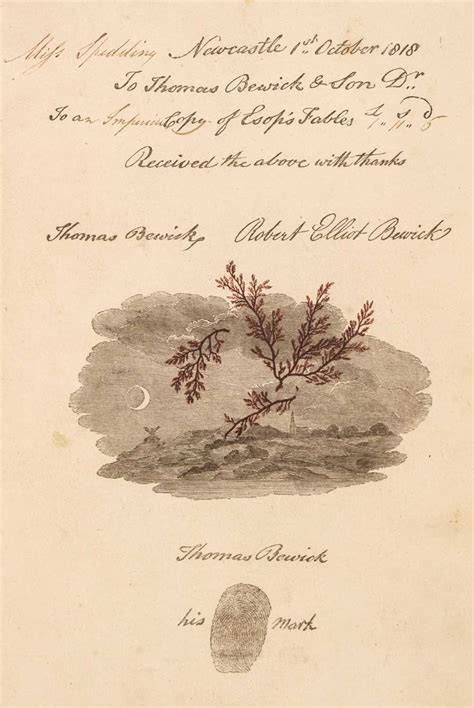 Miss Spedding Newcastle 1st October 1818
To Thomas Bewick & Son Dr.
To an Imperial Copy of Esop's Fables
Received the above with thanks
Thomas Bewick Robert Elliot Bewick
Thomas Bewick
his mark